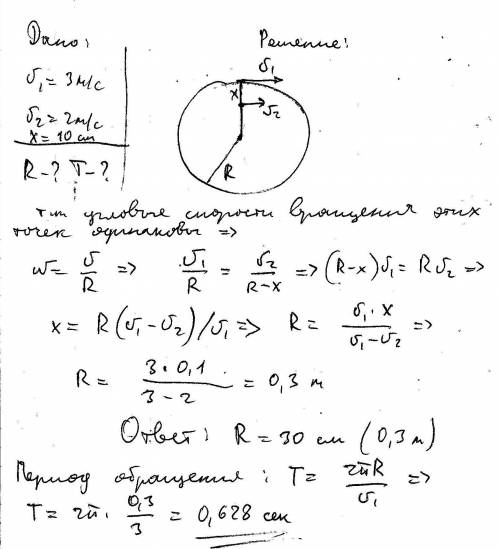 Дано:
Решение:
υ₁ = 3 м/с
υ₂ = 2 м/с
x = 10 см
R - ? T - ?
υ₁
x
υ₂
R
т.к. угловые скорости вращения этих
точек одинаковы =>
ω = υ/R => υ₁/R = υ₂/(R-x) => (R-x)υ₁ = Rυ₂ =>
x = R(υ₁-υ₂)/υ₁ => R = υ₁·x/(υ₁-υ₂) =>
R = 3·0,1/(3-2) = 0,3 м
Ответ: R = 30 см (0,3 м)
Период обращения: T = 2πR/υ₁ =>
T = 2π·0,3/3 = 0,628 сек